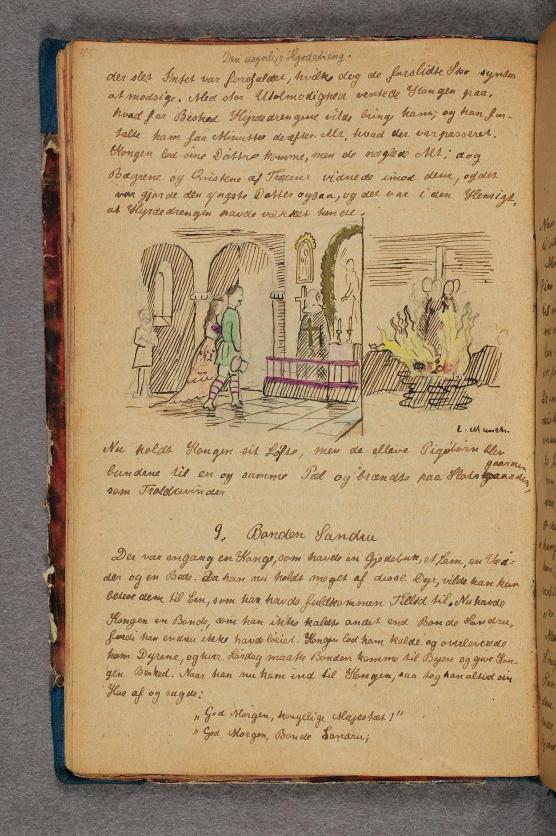 Den usynlige Hyrdedreng.
der slet Intet var forefaldet, hvilke dog de forslidte Sko syntes
at modsige. Med stor Utolmodighed ventede Kongen paa,
hvad for Besked Hyrdedrengene vilde bringe ham; og han for-
talte ham faa Minutter derefter Alt, hvad der var passeret.
Kongen lod sine Døttre komme, men de nægtede Alt; dog
Bægrene og Qvistene af Træerne vidnede imod dem, og det
var gjorde den yngste Datter ogsaa, og det var i den Hensigt,
at Hyrdedrengen havde vækket hende.
E. Munch
Nu holdt Kongen sit Løfte, men de elleve Pigebørn blev
bundene til en og samme Pæl og brændte paa Slots
gaarden,
som Troldqvinder
9. Bonden Sandru
Der var engang en Konge, som havde en Gjedebuk, et Lam, en Væd-
der og en Bede. Da han nu holdt meget af disse Dyr, vilde han kun
betroe dem til Een, som han havde fuldkommen Tillid til. Nu havde
Kongen en Bonde, som han ikke kaldte andet end Bonde Sandru,
fordi han endnu ikke havde løiet. Kongen lod ham kalde og overleverede
ham Dyrene, og hver Lørdag maatte Bonden komme til Byen og give Kon-
gen Besked. Naar han nu kom ind til Kongen, saa tog han altid sin
Hue af og sagde:
"God Morgen, kongelige Majestæt!"
"God Morgen, Bonde Sandru;